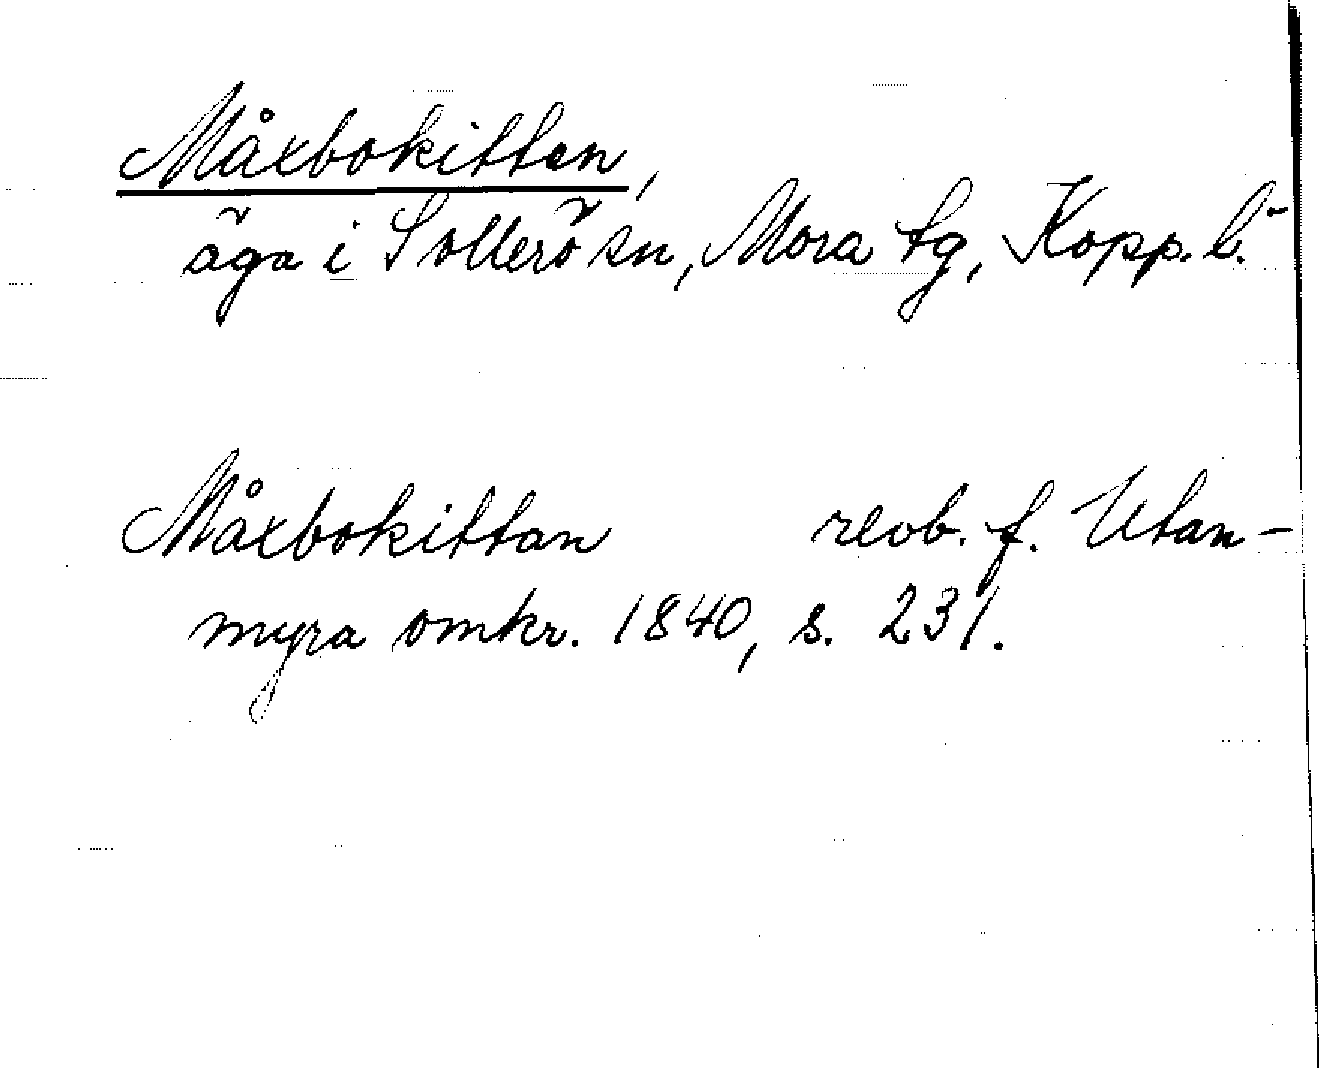 Måxbokittan,
äga i Sollerö sn, Mora tg, Kopp. l.
Måxbokittan revb. f. Utan-
myra omkr. 1840, s. 231.